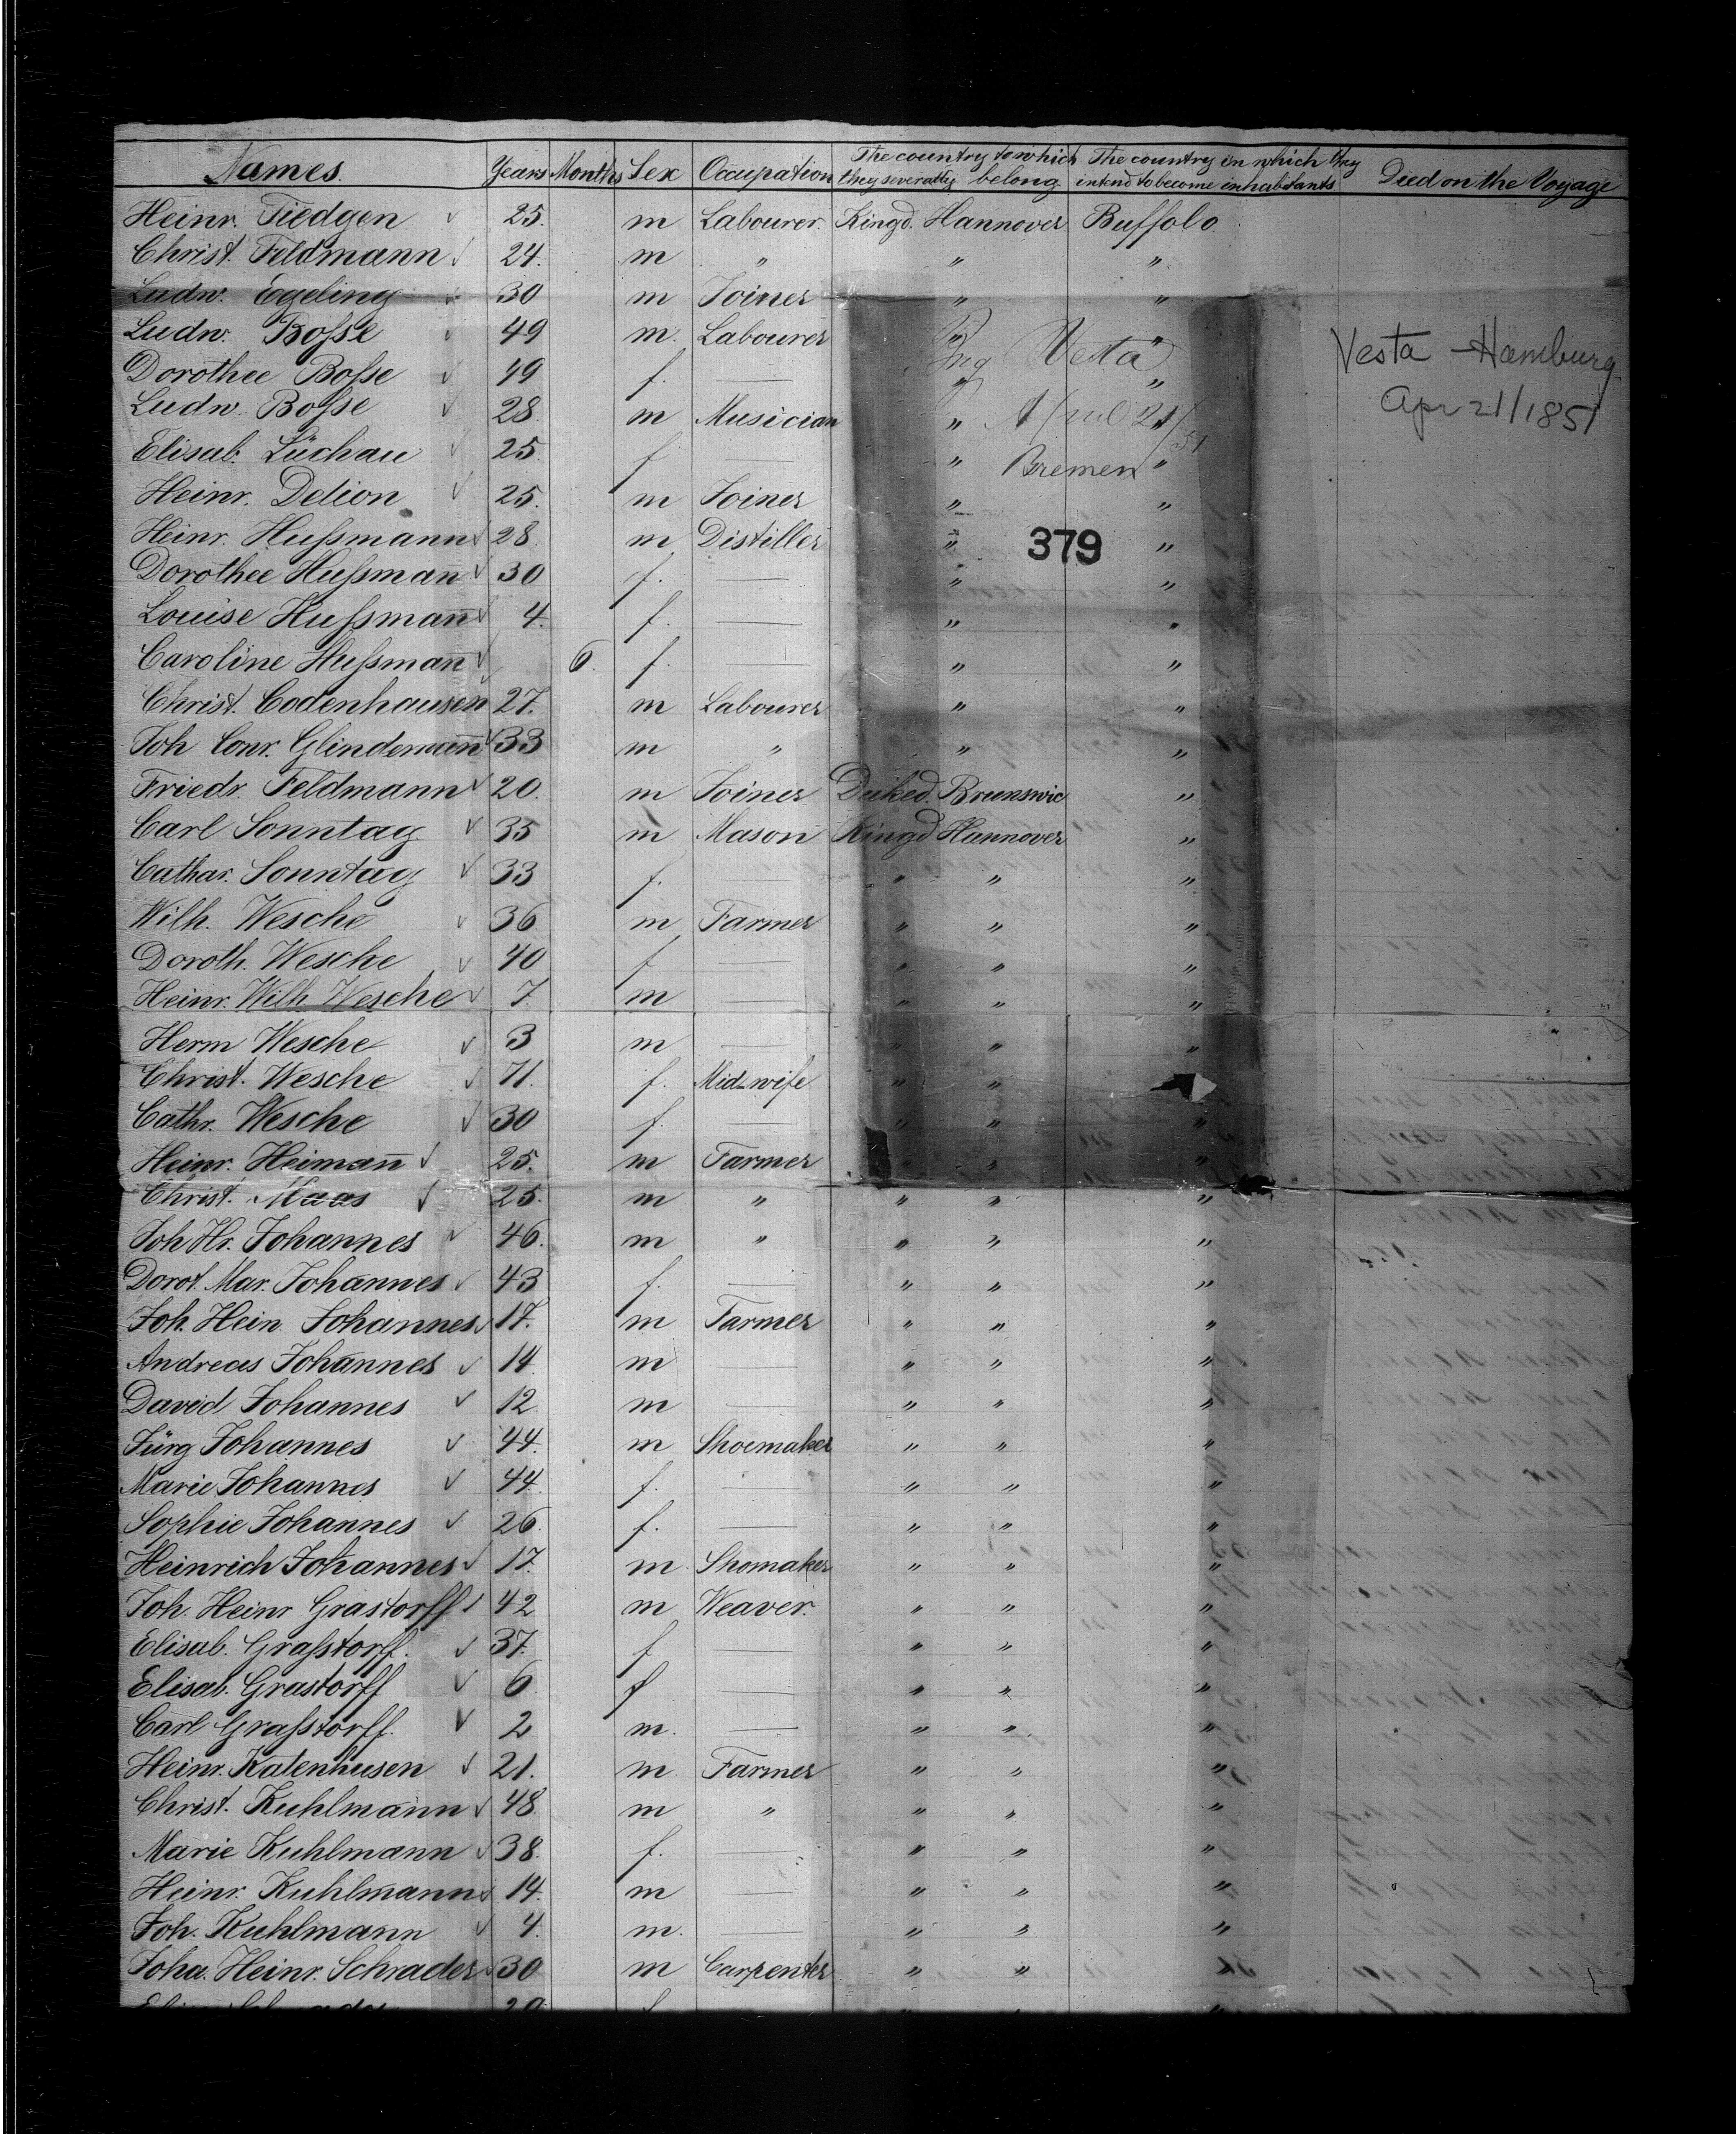 Names. Years Months Sex Occupation The country to which they severally belong. The country in which they intend to become inhabitants Died on the Voyage
Heinr. Tiedgen 25. m Labourer. Kingd. Hannover Buffolo
Christ. Feldmann 24. m " " "
Ludw. Egeling 30 m Joiner " "
Ludw. Bosse 49 m. Labourer " "
Vesta
Vesta - Hamburg
Dorothee Bosse 49 f. — " "
Apr 21/1851
Ludw. Bosse 28 m Musician " "
April 21/51
Elisab. Lüchau 25. f — " "
Bremen
Heinr. Detion 25. m Joiner " "
Heinr. Hussmann 28. m Distiller " "
379
Dorothee Hussmañ 30 f. — " "
Louise Hussmañ 4. f. — " "
Caroline Hussmañ 6. f. — " "
Christ. Codenhausen 27. m Labourer " "
Joh Conr. Glindemañ 33 m " " "
Friedr. Feldmann 20. m Joiner Duked. Brunswic "
Carl Sonntag 35 m Mason Kingd Hannover "
Cathar. Sonntag 33 f. — " " "
Wilh. Wesche 36 m Farmer " " "
Doroth. Wesche 40 f — " " "
Heinr. Wilh Wesche 7. m — " " "
Herm Wesche 3 m — " " "
Christ. Wesche 71. f. Mid-wife " "
Cathr. Wesche 30 f. — " " "
Heinr. Heimañ 25. m Farmer " " "
Christ. Maas 25. m " " " "
Joh Hr. Johannes 46. m " " " "
Dorot. Mar. Johannes 43 f. — " " "
Joh. Hein. Johannes 17. m Farmer " " "
Andreas Johannes 14 m — " " "
David Johannes 12. m — " " "
Jürg Johannes 44. m Shoemaker " " "
Marie Johannes 44 f. — " " "
Sophie Johannes 26. f. — " " "
Heinrich Johannes 17. m. Shomaker " " "
Joh. Heinr Grastorff 42 m Weaver. " " "
Elisab. Grasstorff. 37. f — " " "
Elisab. Grastorff 6 f — " " "
Carl Grasstorff. 2 m. — " " "
Heinr. Katenhusen 21. m. Farmer " " "
Christ. Kuhlmann 48 m " " " "
Marie Kuhlmann 38. f. — " " "
Heinr. Kuhlmann 14. m — " " "
Joh. Kuhlmann 4. m. — " " "
Joha. Heinr. Schrader 30 m Carpenter " " "